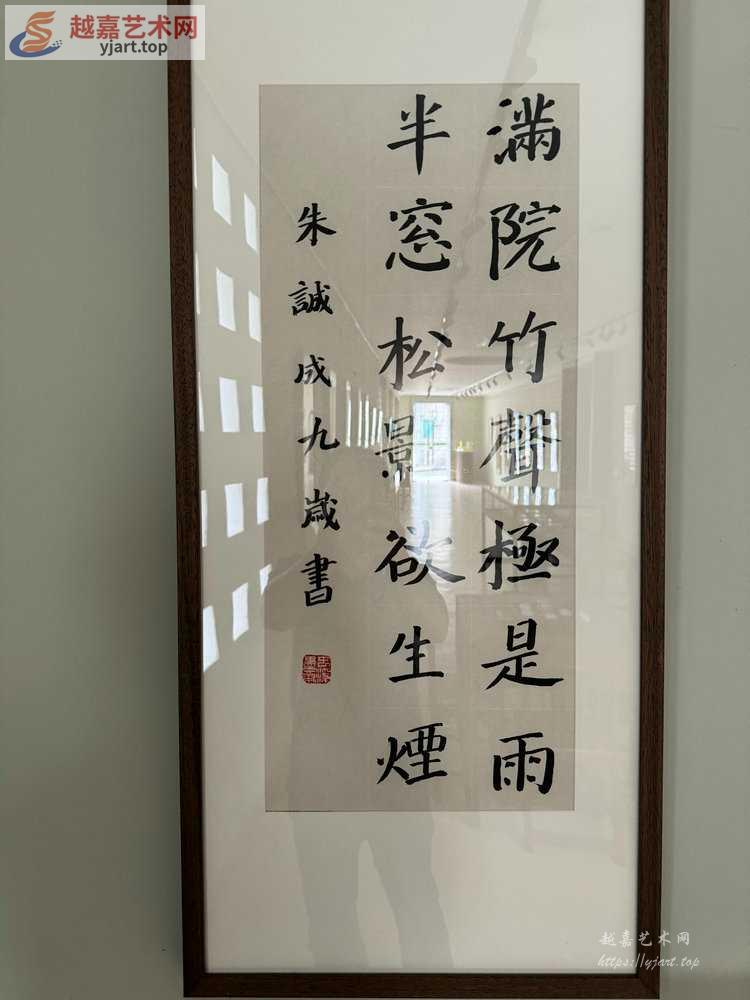 越嘉艺术网
yjart.top
滿院竹聲極是雨
半窓松景欲生煙
朱誠成九歲書
越嘉艺术网
https://yjart.top